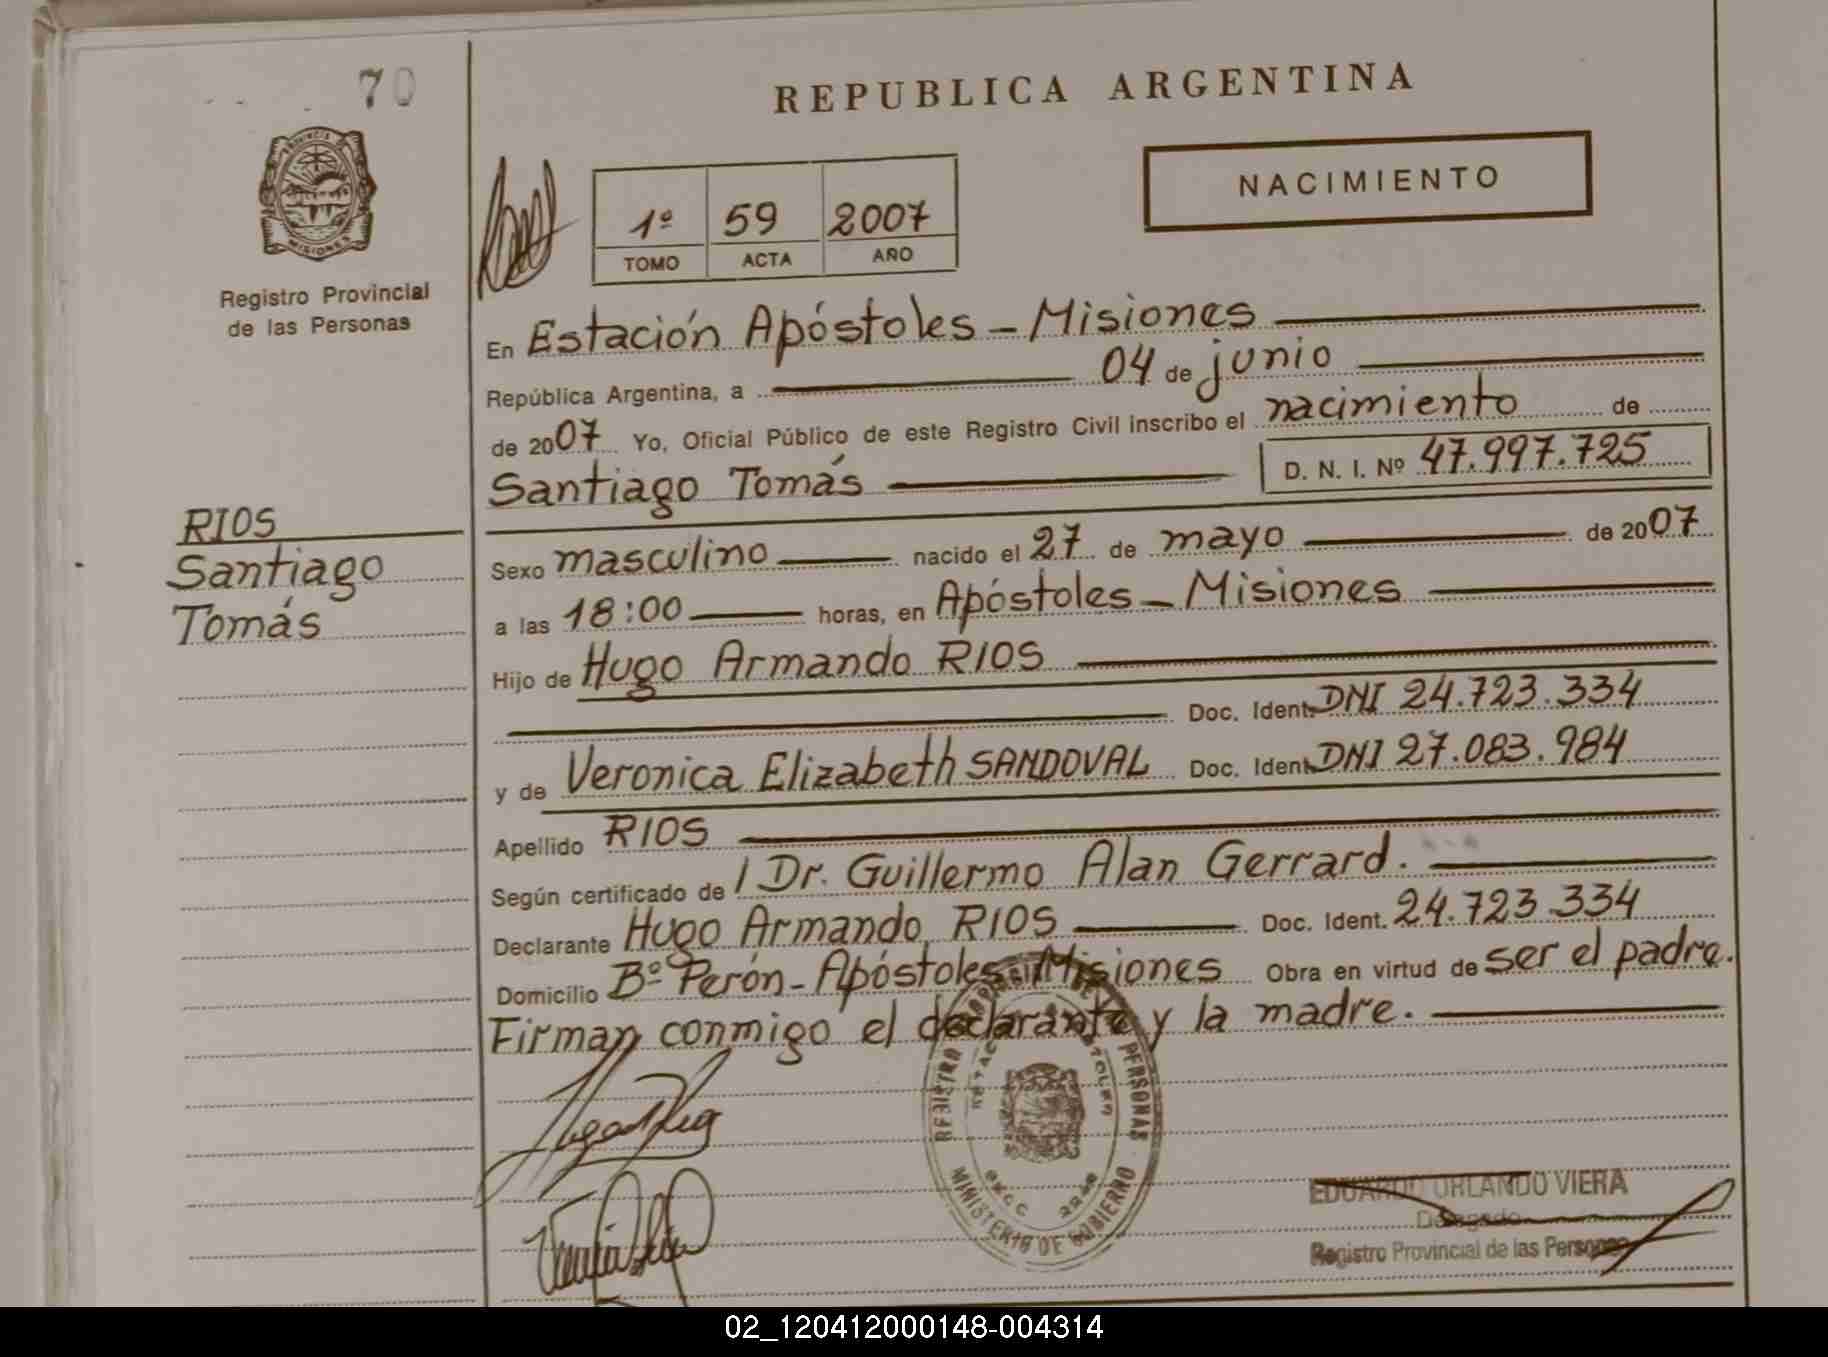 70
PROVINCIA
MISIONES
Registro Provincial
de las Personas
RIOS
Santiago
Tomás
REPUBLICA ARGENTINA
NACIMIENTO
1º 59 2007
TOMO ACTA AÑO
En Estación Apóstoles - Misiones
República Argentina, a 04 de junio
de 2007 Yo, Oficial Público de este Registro Civil inscribo el nacimiento de
Santiago Tomás D. N. I. Nº 47.997.725
Sexo masculino nacido el 27 de mayo de 2007
a las 18:00 horas, en Apóstoles - Misiones
Hijo de Hugo Armando RIOS
Doc. Ident. DNI 24.723.334
y de Veronica Elizabeth SANDOVAL Doc. Ident. DNI 27.083.984
Apellido RIOS
Según certificado de / Dr. Guillermo Alan Gerrard.
Declarante Hugo Armando RIOS Doc. Ident. 24.723.334
Domicilio Bº Perón - Apóstoles - Misiones Obra en virtud de ser el padre.
Firman conmigo el declarante y la madre.
REGISTRO PERSONAS
MINISTERIO DE GOBIERNO
EDUARDO ORLANDO VIERA
Delegado
Registro Provincial de las Personas
02_120412000148-004314